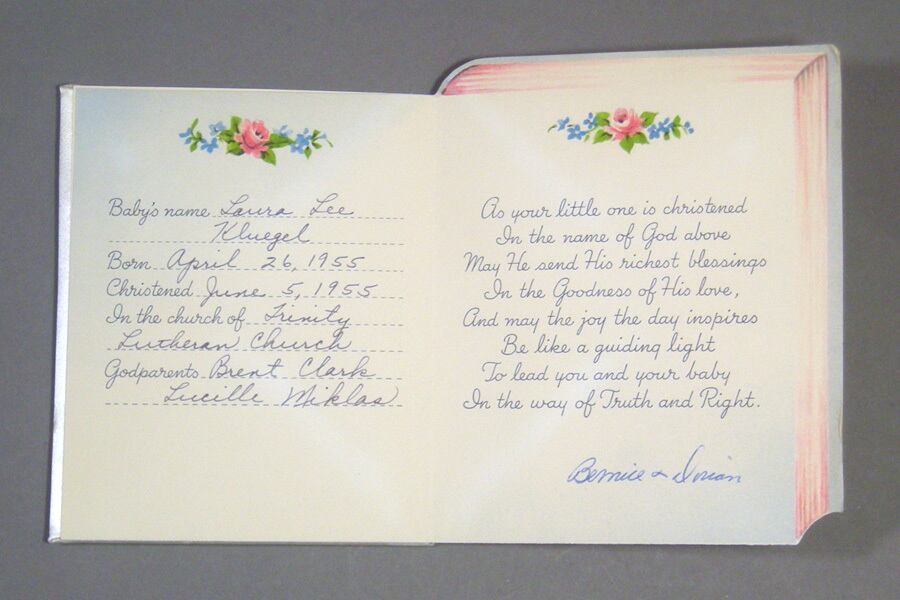 Baby's name Laura Lee
Kluegel
Born April 26, 1955
Christened June 5, 1955
In the church of Trinity
Lutheran Church
Godparents Brent Clark
Lucille Miklas
As your little one is christened
In the name of God above
May He send His richest blessings
In the Goodness of His love,
And may the joy the day inspires
Be like a guiding light
To lead you and your baby
In the way of Truth and Right.
Bernice & Dorian